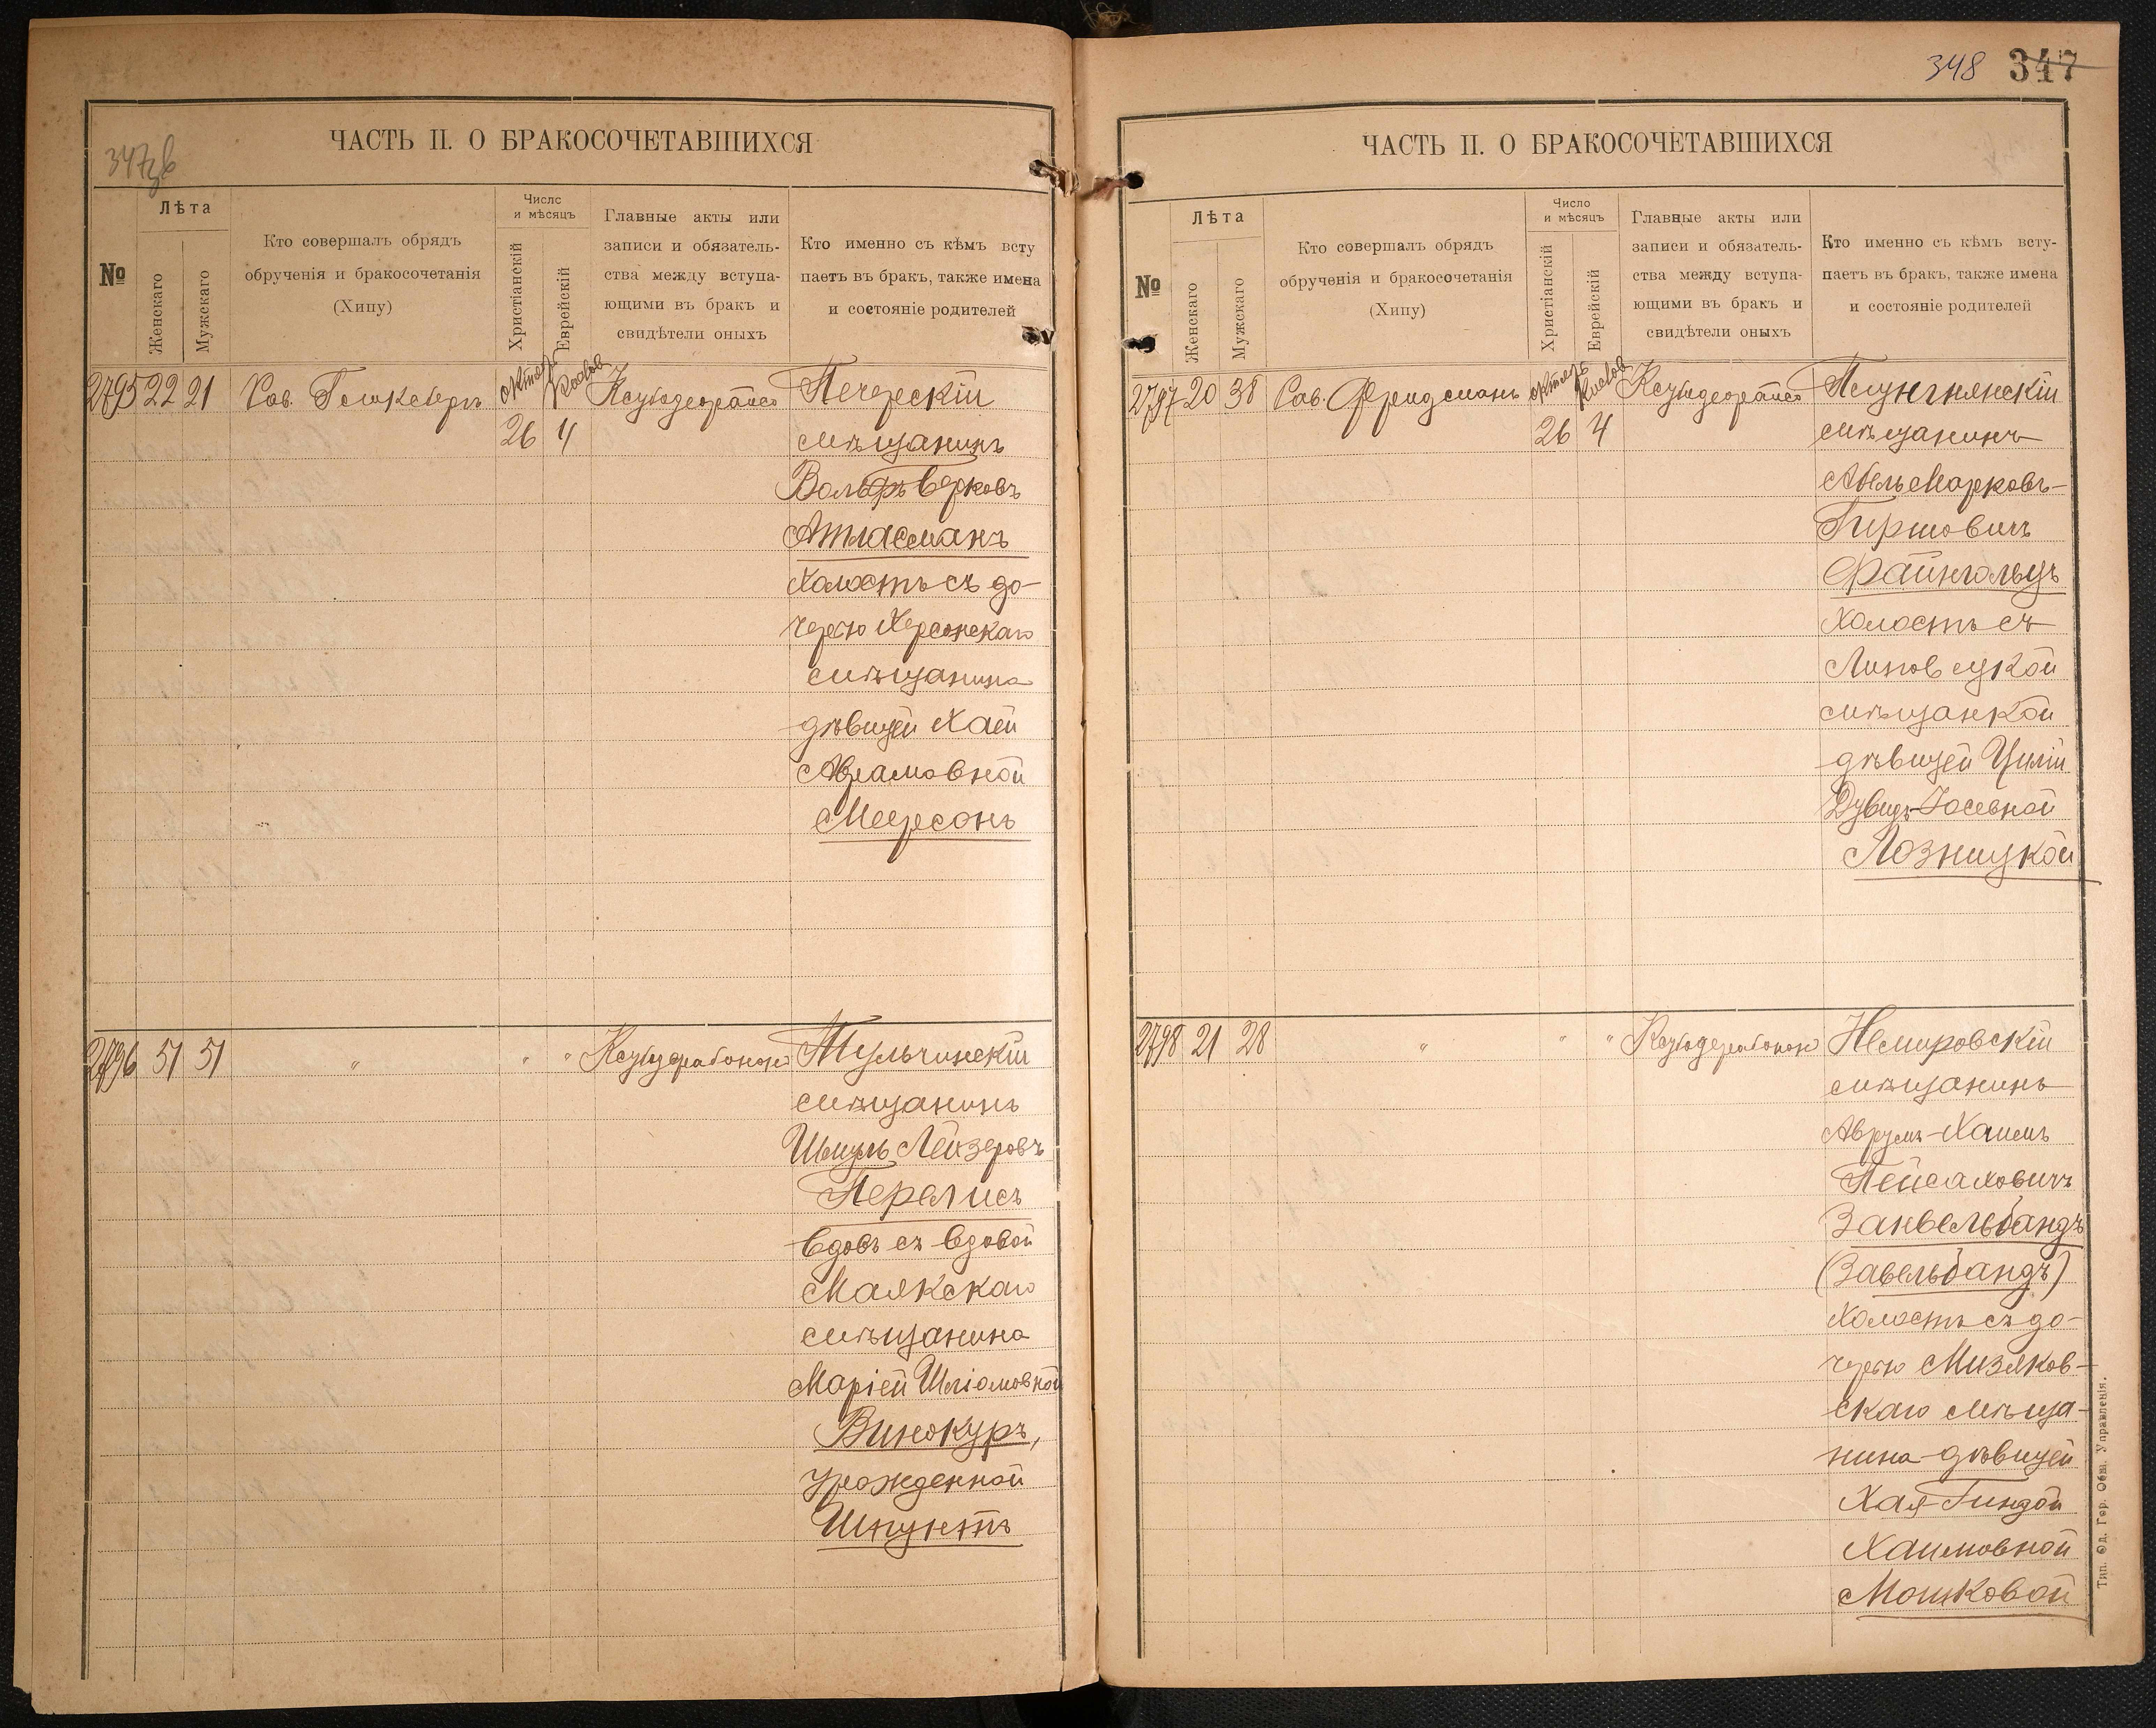 347об
ЧАСТЬ II. О БРАКОСОЧЕТАВШИХСЯ
№
Лѣта
Женскаго
Мужскаго
Кто совершалъ обрядъ
обрученія и бракосочетанія
(Хипу)
Число
и мѣсяцъ
Христіанскій
Еврейскій
Главные акты или
записи и обязатель-
ства между вступа-
ющими въ бракъ и
свидѣтели оныхъ
Кто именно съ кѣмъ всту
паетъ въ бракъ, также имена
и состояніе родителей
2795 22 21
октяб
26 4
Печерскій
мѣщанинъ
Вольфъ Берковъ
Атласманъ
холостъ съ до-
черью Херсонскаго
мѣщанина
дѣвицей Хаей
Абрамовной
Меерсонъ
2796 51 51 " " " Тульчинскій
мѣщанинъ
Шмуль Лейзеровъ
Перелисъ
вдовъ съ вдовой
Маякскаго
мѣщанина
Маріей Шліомовной
Винокуръ,
урожденной
Шпунтъ
348 347
ЧАСТЬ II. О БРАКОСОЧЕТАВШИХСЯ
№
Лѣта
Женскаго
Мужскаго
Кто совершалъ обрядъ
обрученія и бракосочетанія
(Хипу)
Число
и мѣсяцъ
Христіанскій
Еврейскій
Главные акты или
записи и обязатель-
ства между вступа-
ющими въ бракъ и
свидѣтели оныхъ
Кто именно съ кѣмъ всту-
паетъ въ бракъ, также имена
и состояніе родителей
2797 20 38 Рав. Фридманъ октяб
26 4
мѣщанинъ
Абель Марковъ-
Гиршовичъ
Файнгольцъ
холостъ съ
Липовецкой
мѣщанкой
дѣвицей Циліи
Дувидъ-Іосевной
Лозницкой
2798 21 28 " " " Немировскій
мѣщанинъ
Аврумъ-Хаимъ
Пейсаховичъ
Занвельбандъ
(Завельбандъ)
холостъ съ до-
черью Мизяков-
скаго мѣща-
нина дѣвицей
Хая-Гиндой
Хаимовной
Мошковой
Тип. Од. Гор. Общ. Управленія.